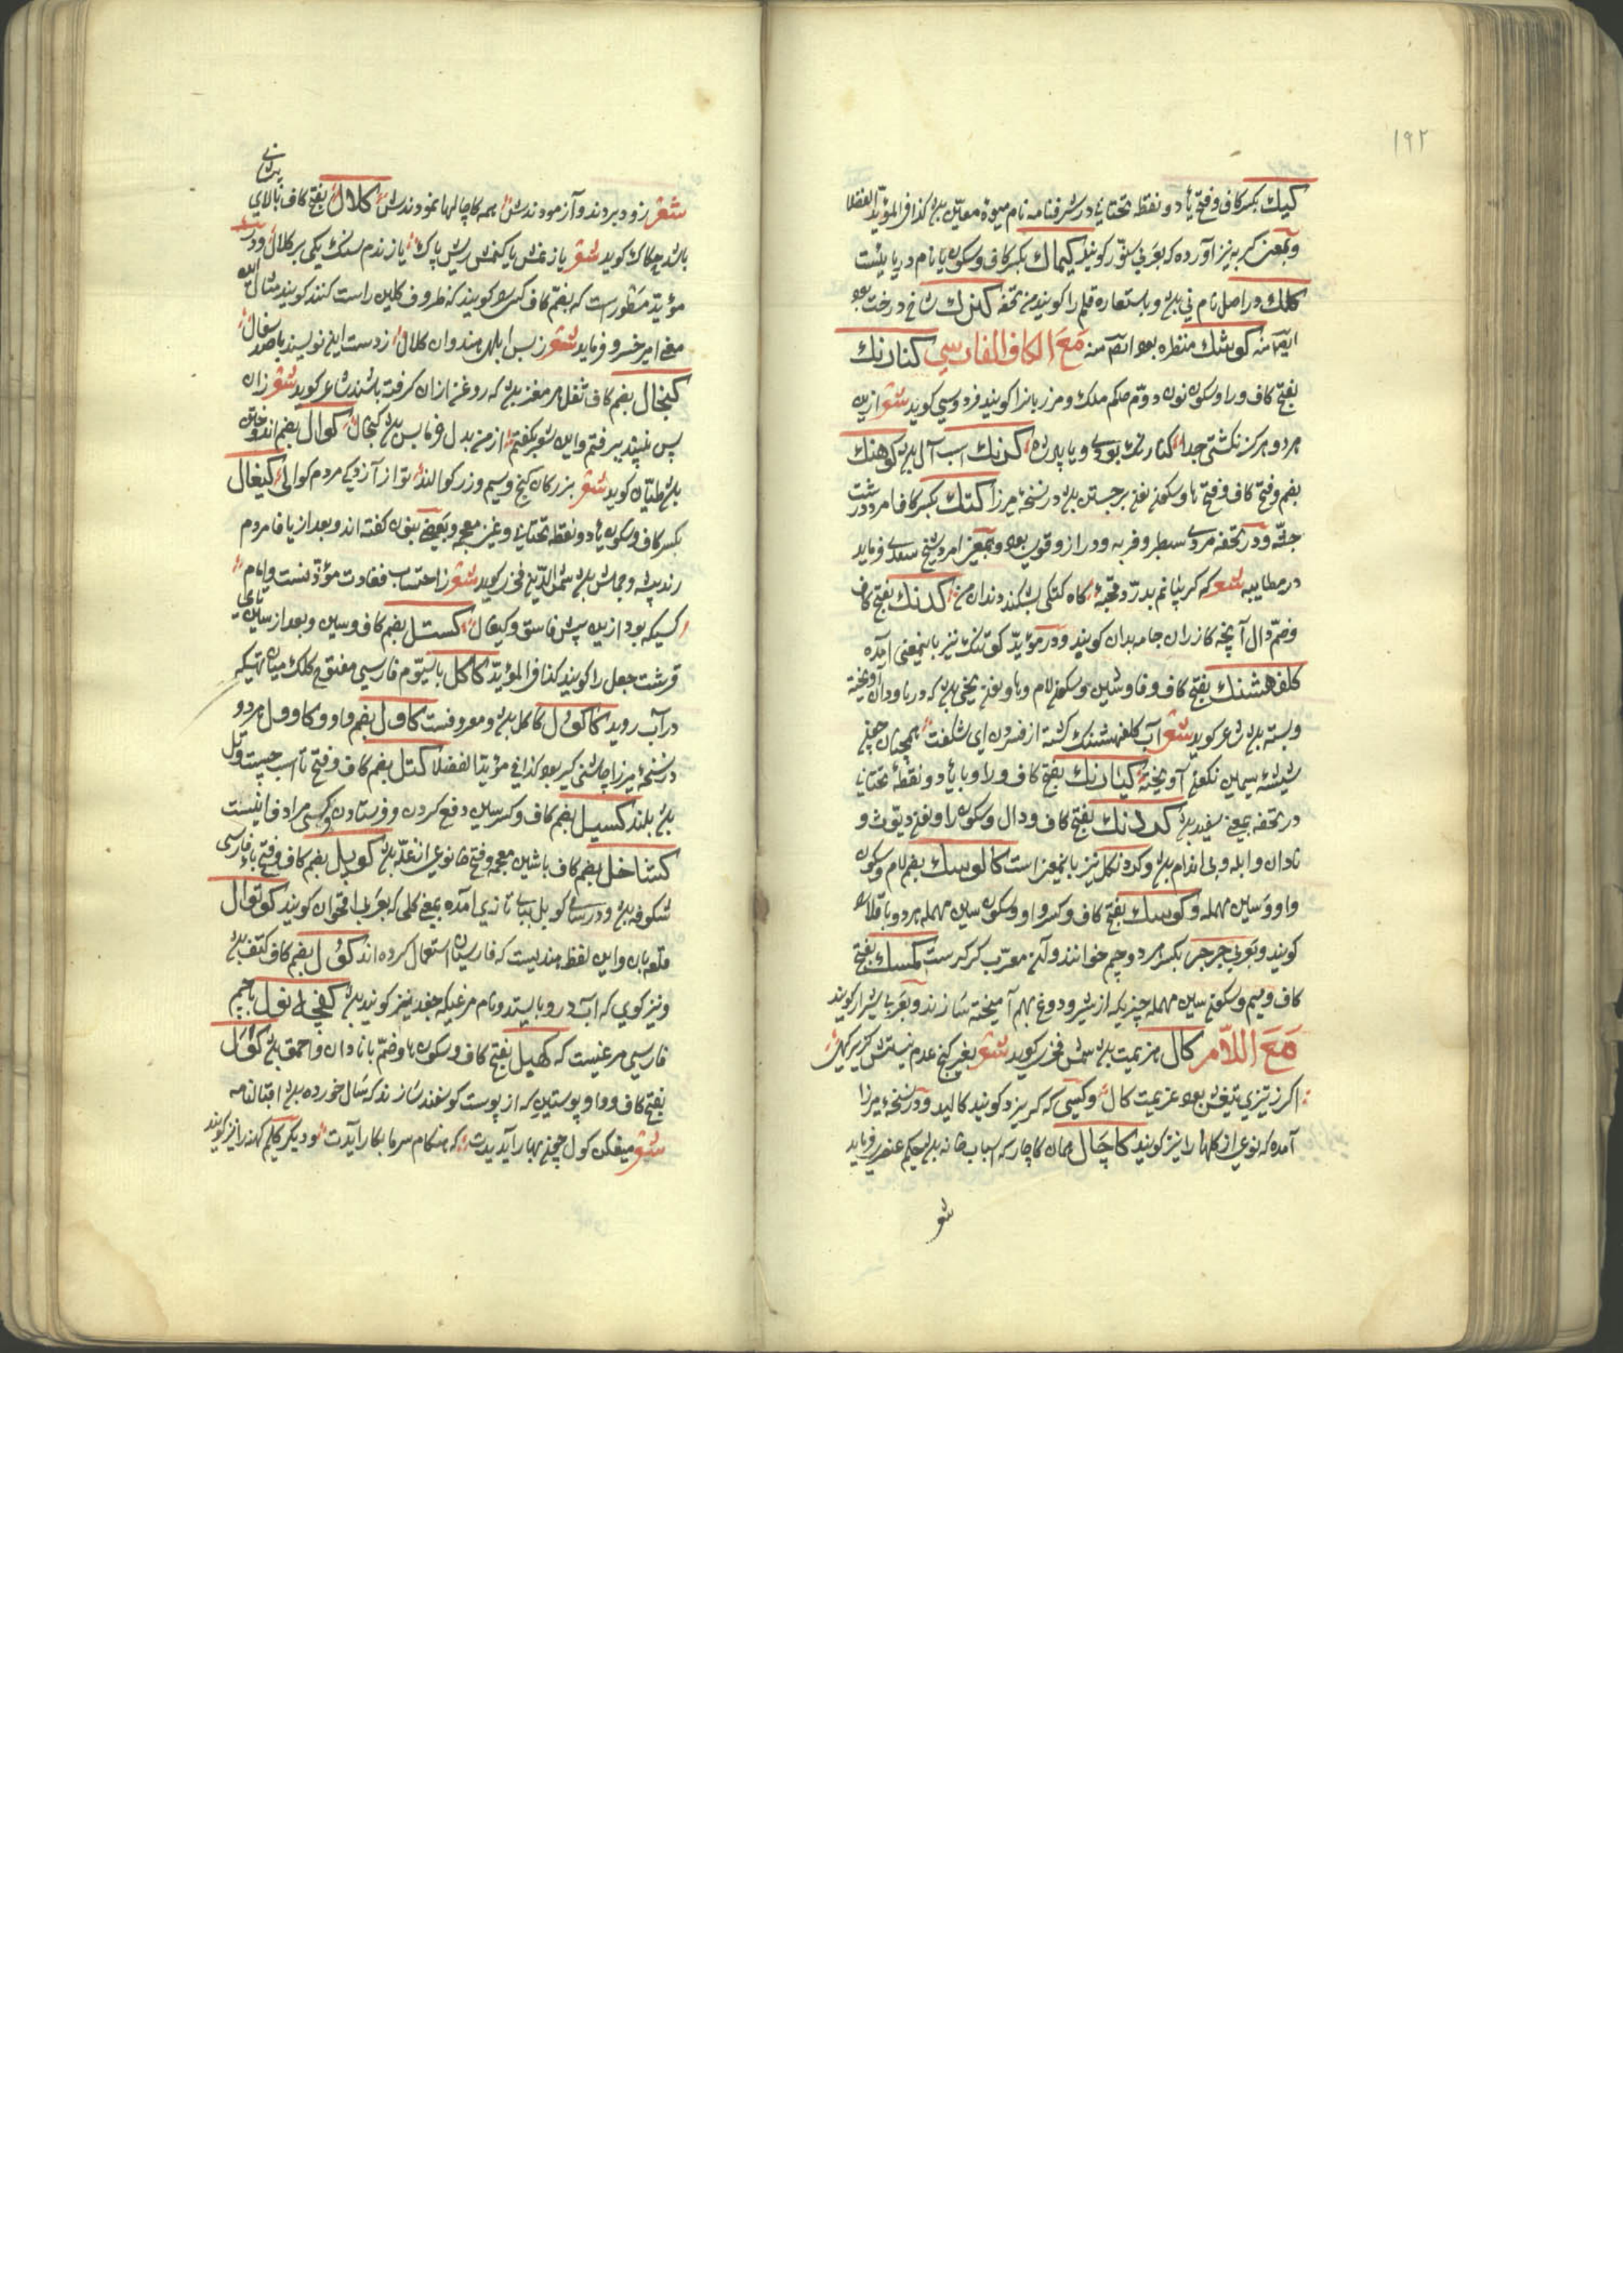 ۱۹۲
کیک بکسر کاف و فتح یاء دو نقطه تحتانی در شرفنامه نام میوهٔ معین بود کذا فی المؤید الفضلا
و بمعنی گربه نیز آورده که بعربی سنور گویند کیماک بکسر کاف و سکون یا نام دریائیست
کلک در اصل نام نی بود و باستعاره قلم را گویند من تحفه کنزک شاخ درخت بود
ایضا منه کوشک منظره بود ایضا منه مع الکاف الفارسی کنارنک
بفتح کاف و را و سکون نون دوم حاکم ملک و مرزبانرا گویند فردوسی گوید شعر ازین
هر دو هرگز نگشتی جدا کنارنک بودی و یا پادشا کرنک اسب آل بود کوهنک
بضم و فتح کاف و فتح ها و سکون نون برجستن بود در نسخه میرزا کتک بکسر کاف امرد درشت
جثه و در تحفه مردی سطبر و فربه و دراز و قوی بود و بمعنی امرد شیخ سعدی فرماید
در مطایبه شعر که گر بپا نم بدرد قحبه گاه کتکی بشکند دندان من کدنک بفتح کاف
و ضم دال آنچه گازران جامه بدان کوبند و در مؤید کوتنک نیز باینمعنی آمده
کلفهشنک بفتح کاف و فا و شین و سکون لام و ها و نون یخی بود که در ناودان آویخته
و بسته بود شاعر گوید شعر آب کلفهشنک گشته از فسردن ای شگفت همچنان چون
شیشه سیمین نگون آویخته کیارنک بفتح کاف و را و با یاء دو نقطه تحتانی
در تحفه بمعنی سفید بود کردنک بفتح کاف و دال و سکون را و نون دیوث و
نادان و ابله و بی اندام بود و کردنکل نیز باینمعنی است کالوسک بضم لام و سکون
واو و سین مهمله و کوسک بفتح کاف و کسر واو و سکون سین مهمله هر دو باقلا
گویند و بعربی جرجر بکسر هر دو جیم خوانند و آن معرب کرکرست کمسک بفتح
کاف و میم و سکون سین مهمله چیزیکه از شیر و دوغ بهم آمیخته سازند و بعربی شیراز گویند
مع اللام کال هزیمت بود شمس فخری گوید شعر بغیر کنج عدم نیستش گریزگهی
اگر ز تیزی تیغش بود عزیمت کال و کسی که گریزد گویند کالید و در نسخه میرزا
آمده که نوعی از گلها را نیز گویند کاچال همان کاچار که اسباب خانه بود حکیم عنصری فرماید
شعر
شعر زود بردند و آزمودندش همه کاچالها نمودندش کلال بفتح کاف بالای پیشانی
باشد چکاک گوید شعر یا زنمش یا کنمش ریش پاک یا زندم سنگ یکی بر کلال و در
مؤید مسطورست که بضم کاف کسی را گویند که ظروف گلین راست کند گویند مثال الله
مغی امیر خسرو فرماید شعر ز بس ابلهی هندوان کلال ز دست این نویسند با صد سفال
کنجال بضم کاف ثقل هر مغز بود که روغن از ان گرفته باشند شاعر گوید شعر زان
پس نپیندیرفتم و این شعر بگفتم از من بدل خرماس بود کنجال کوال بضم اندوختن
بود طیان گوید شعر بزرگان گنج و سیم و زر کوالند تو از آزدگی مردم کوالی کیغال
بکسر کاف و سکون یاء دو نقطه تحتانی و غین معجمه و بعضی بنون گفته اند و بعد از یا فا مردم
رند پیشه و جماش بود شمس الدین فخری گوید شعر ز احتساب فعادت مؤذنست و امام
کسیکه بود ازین پیش فاسق و کیغال کستل بضم کاف و سین و بعد از سین تای
قرشت جعل را گویند کذا فی المؤید کاکل با سیوم فارسی مفتوح کلک میان تهی که
در آب روید کاکول کاکل بود و معروفست کاول بضم واو و کاوول هر دو
در نسخه میرزا چاشنی گیر بود کذا فی مؤید الفضلا کتل بضم کاف و فتح تا اسب جنیبت و تل
بود بلند کسیل بضم کاف و کسر سین دفع کردن و فرستادن و کسی مرادف اینست
کشاخل بضم کاف با شین معجمه و فتح خا نوعی از غله بود کوپل بضم کاف و فتح باء فارسی
شکوفه بود و در رساله کوبل ببای تازی آمده بمعنی گلی که بعربی اقحوان گویند کوتوال
قلعه بان و این لفظ هندیست که فارسیان استعمال کرده اند کول بضم کاف کتف بود
و نیز گوی که آب درو بایستد و نام مرغیکه جغد نیز گویند بود کفچه نول با جیم
فارسی مرغیست که کهبل بفتح کاف و سکون ها و ضم با نادان و احمق بود کول
بفتح کاف و واو پوستین که از پوست گوسفند سازند که سال خورده بود اقبالنامه
شعر میفکن کول چون بهار آیدت که هنگام سرما بکار آیدت و دیگر گلیم کهنه را نیز گویند